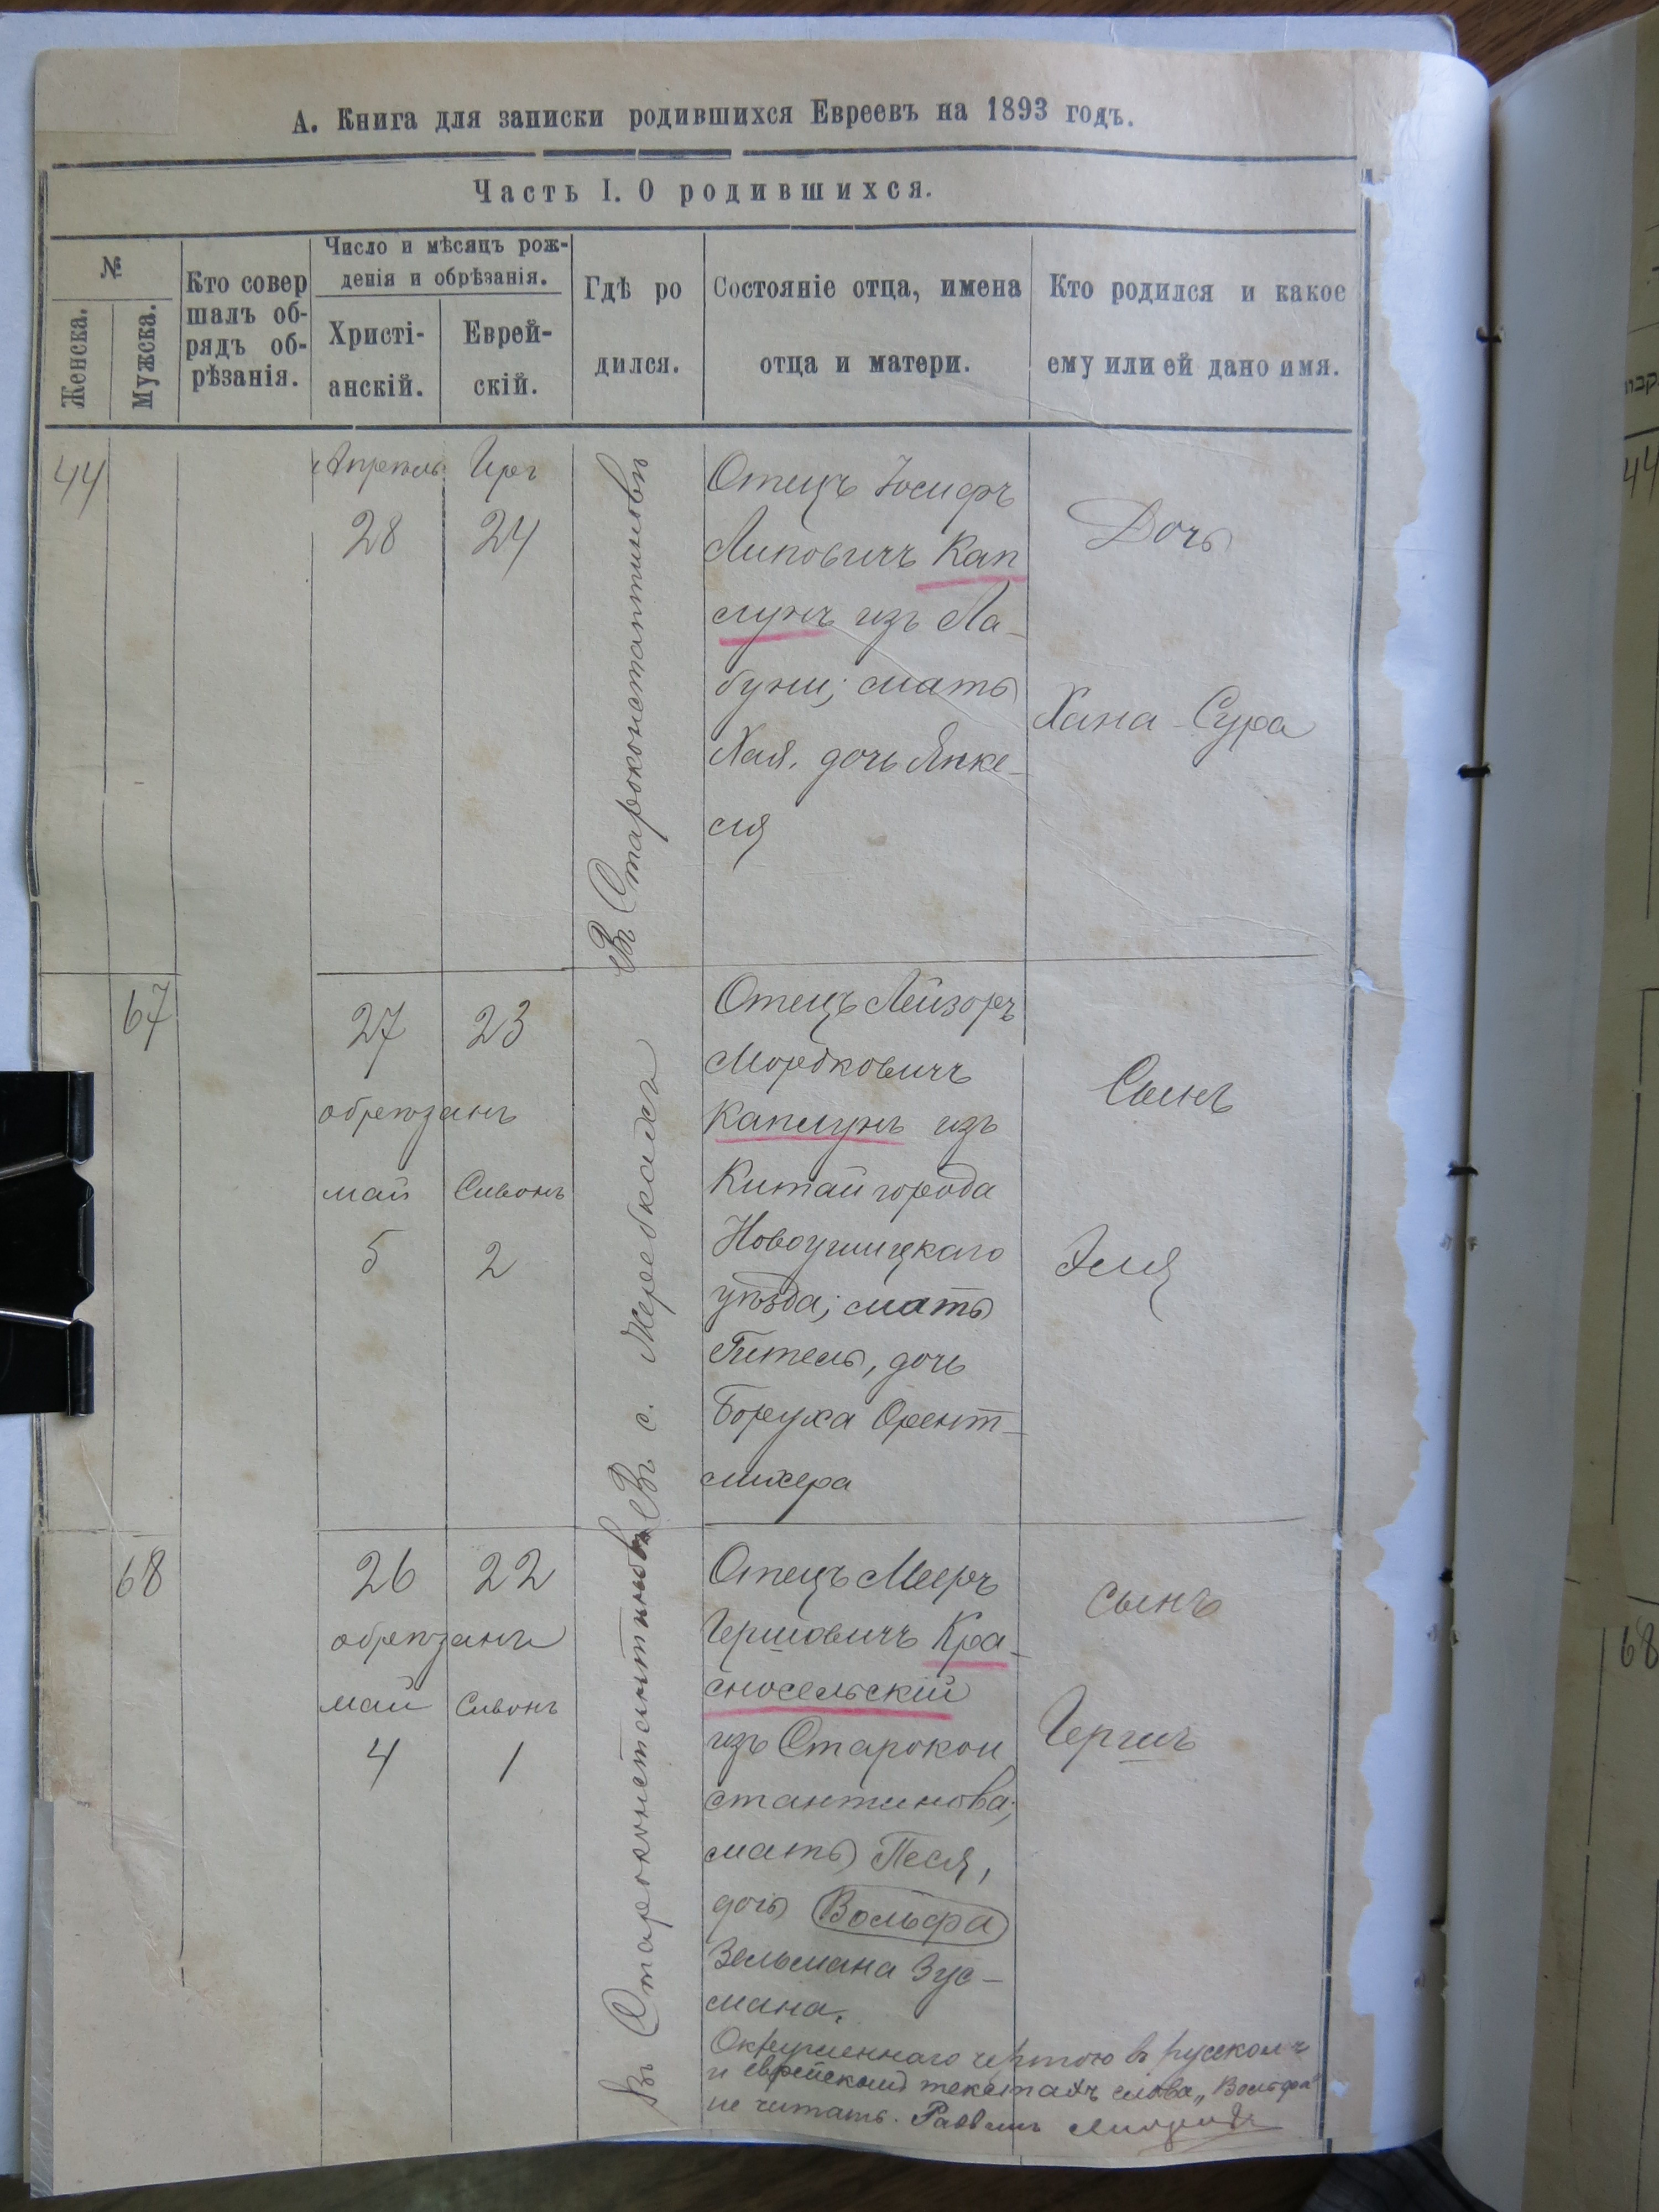 А. Книга для записки родившихся Евреевъ на 1893 годъ.
Часть I. О родившихся.
№
Женска.
Мужска.
Кто совер
шалъ об-
рядъ об-
рѣзанія.
Число и мѣсяцъ рож-
денія и обрѣзанія.
Христі-
анскій.
Еврей-
скій.
Гдѣ ро
дился.
Состояніе отца, имена
отца и матери.
Кто родился и какое
ему или ей дано имя.
44
Апрель Іиръ
28 24
Въ Староконстантиновѣ
Отецъ Іосифъ
Липовичъ Кап
лунъ изъ Ла-
буни; мать
Хая, дочь Янке-
ля
Дочь
Хана-Сура
67
27 23
обрѣзанъ
май Сивонъ
5 2
Въ с. Жеребкахъ
Отецъ Лейзоръ
Мордковичъ
Каплунъ изъ
Китайгорода
Новоушицкаго
уѣзда; мать
Гитель, дочь
Боруха Орент-
лихера
Сынъ
Эля
68
26 22
обрѣзанъ
май Сивонъ
4 1
Въ Староконстантиновѣ
Отецъ Мееръ
Гершовичъ Кра-
сносельскій
изъ Старокон
стантинова;
мать Песя,
дочь Вольфа
Зельмана Зус-
мана.
Сынъ
Гершъ
Окруженнаго чертою въ русскомъ
и еврейскомъ текстахъ слова „Вольфа"
не читать. Раввинъ
44
68